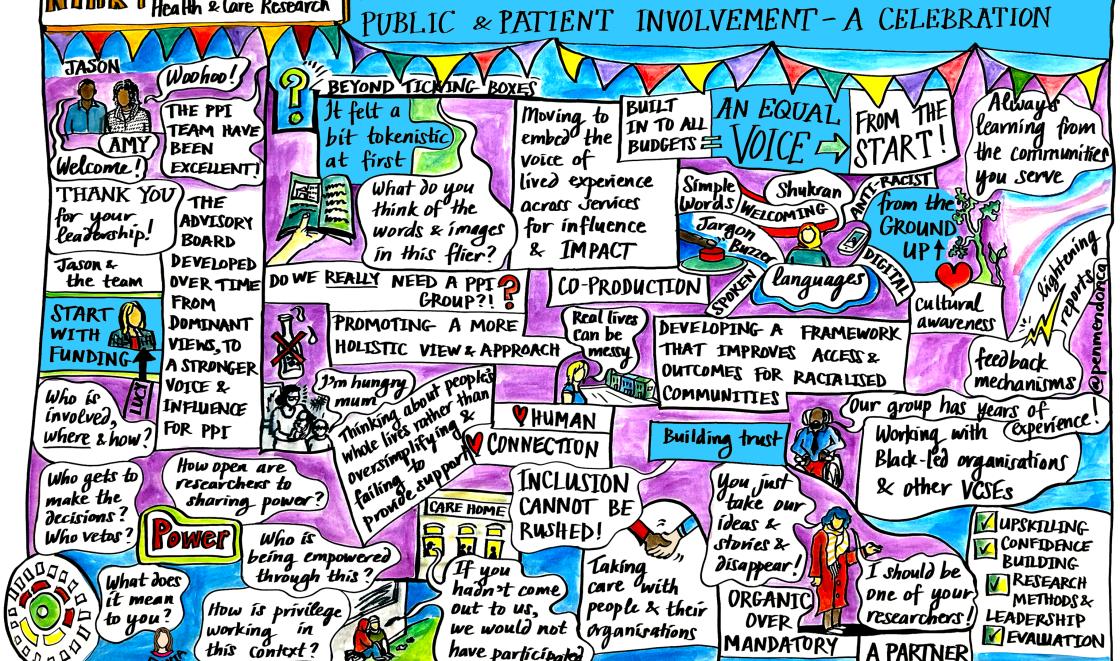 Health & Care Research
PUBLIC & PATIENT INVOLVEMENT - A CELEBRATION
JASON
Woohoo!
AMY
Welcome!
THE PPI
TEAM HAVE
BEEN
EXCELLENT!
THANK YOU
for your
leadership!
Jason &
the team
START
WITH
FUNDING
LUCY
THE
ADVISORY
BOARD
DEVELOPED
OVER TIME
FROM
DOMINANT
VIEWS, TO
A STRONGER
VOICE &
INFLUENCE
FOR PPI
Who is
involved,
where & how?
?
BEYOND TICKING BOXES
It felt a
bit tokenistic
at first
What do you
think of the
words & images
in this flier?
Moving to
embed the
voice of
lived experience
across services
for influence
& IMPACT
BUILT
IN TO ALL
BUDGETS =
AN EQUAL
VOICE
FROM THE
START!
Always
learning from
the communities
you serve
Simple
words
WELCOMING
Shukran
Jargon
Buzzer
SPOKEN
languages
DIGITAL
ANTI-RACIST
from the
GROUND
UP
cultural
awareness
lightening
reports
feedback
mechanisms
@penmendonca
DO WE REALLY NEED A PPI
GROUP?!
?
CO-PRODUCTION
PROMOTING A MORE
HOLISTIC VIEW & APPROACH
Real lives
can be
messy
DEVELOPING A FRAMEWORK
THAT IMPROVES ACCESS &
OUTCOMES FOR RACIALISED
COMMUNITIES
I'm hungry
mum
Thinking about people's
whole lives rather than
oversimplifying &
failing to
provide support
HUMAN
CONNECTION
Building trust
Our group has years of
experience!
Working with
Black-led organisations
& other VCSEs
Who gets to
make the
decisions?
Who vetos?
How open are
researchers to
sharing power?
Power
Who is
being empowered
through this?
What does
it mean
to you?
How is privilege
working in
this context?
CARE HOME
If you
hadn't come
out to us,
we would not
have participated
INCLUSION
CANNOT BE
RUSHED!
Taking
care with
people & their
organisations
You just
take our
ideas &
stories &
disappear!
ORGANIC
OVER
MANDATORY
I should be
one of your
researchers!
A PARTNER
UPSKILLING
CONFIDENCE
BUILDING
RESEARCH
METHODS &
LEADERSHIP
EVALUATION